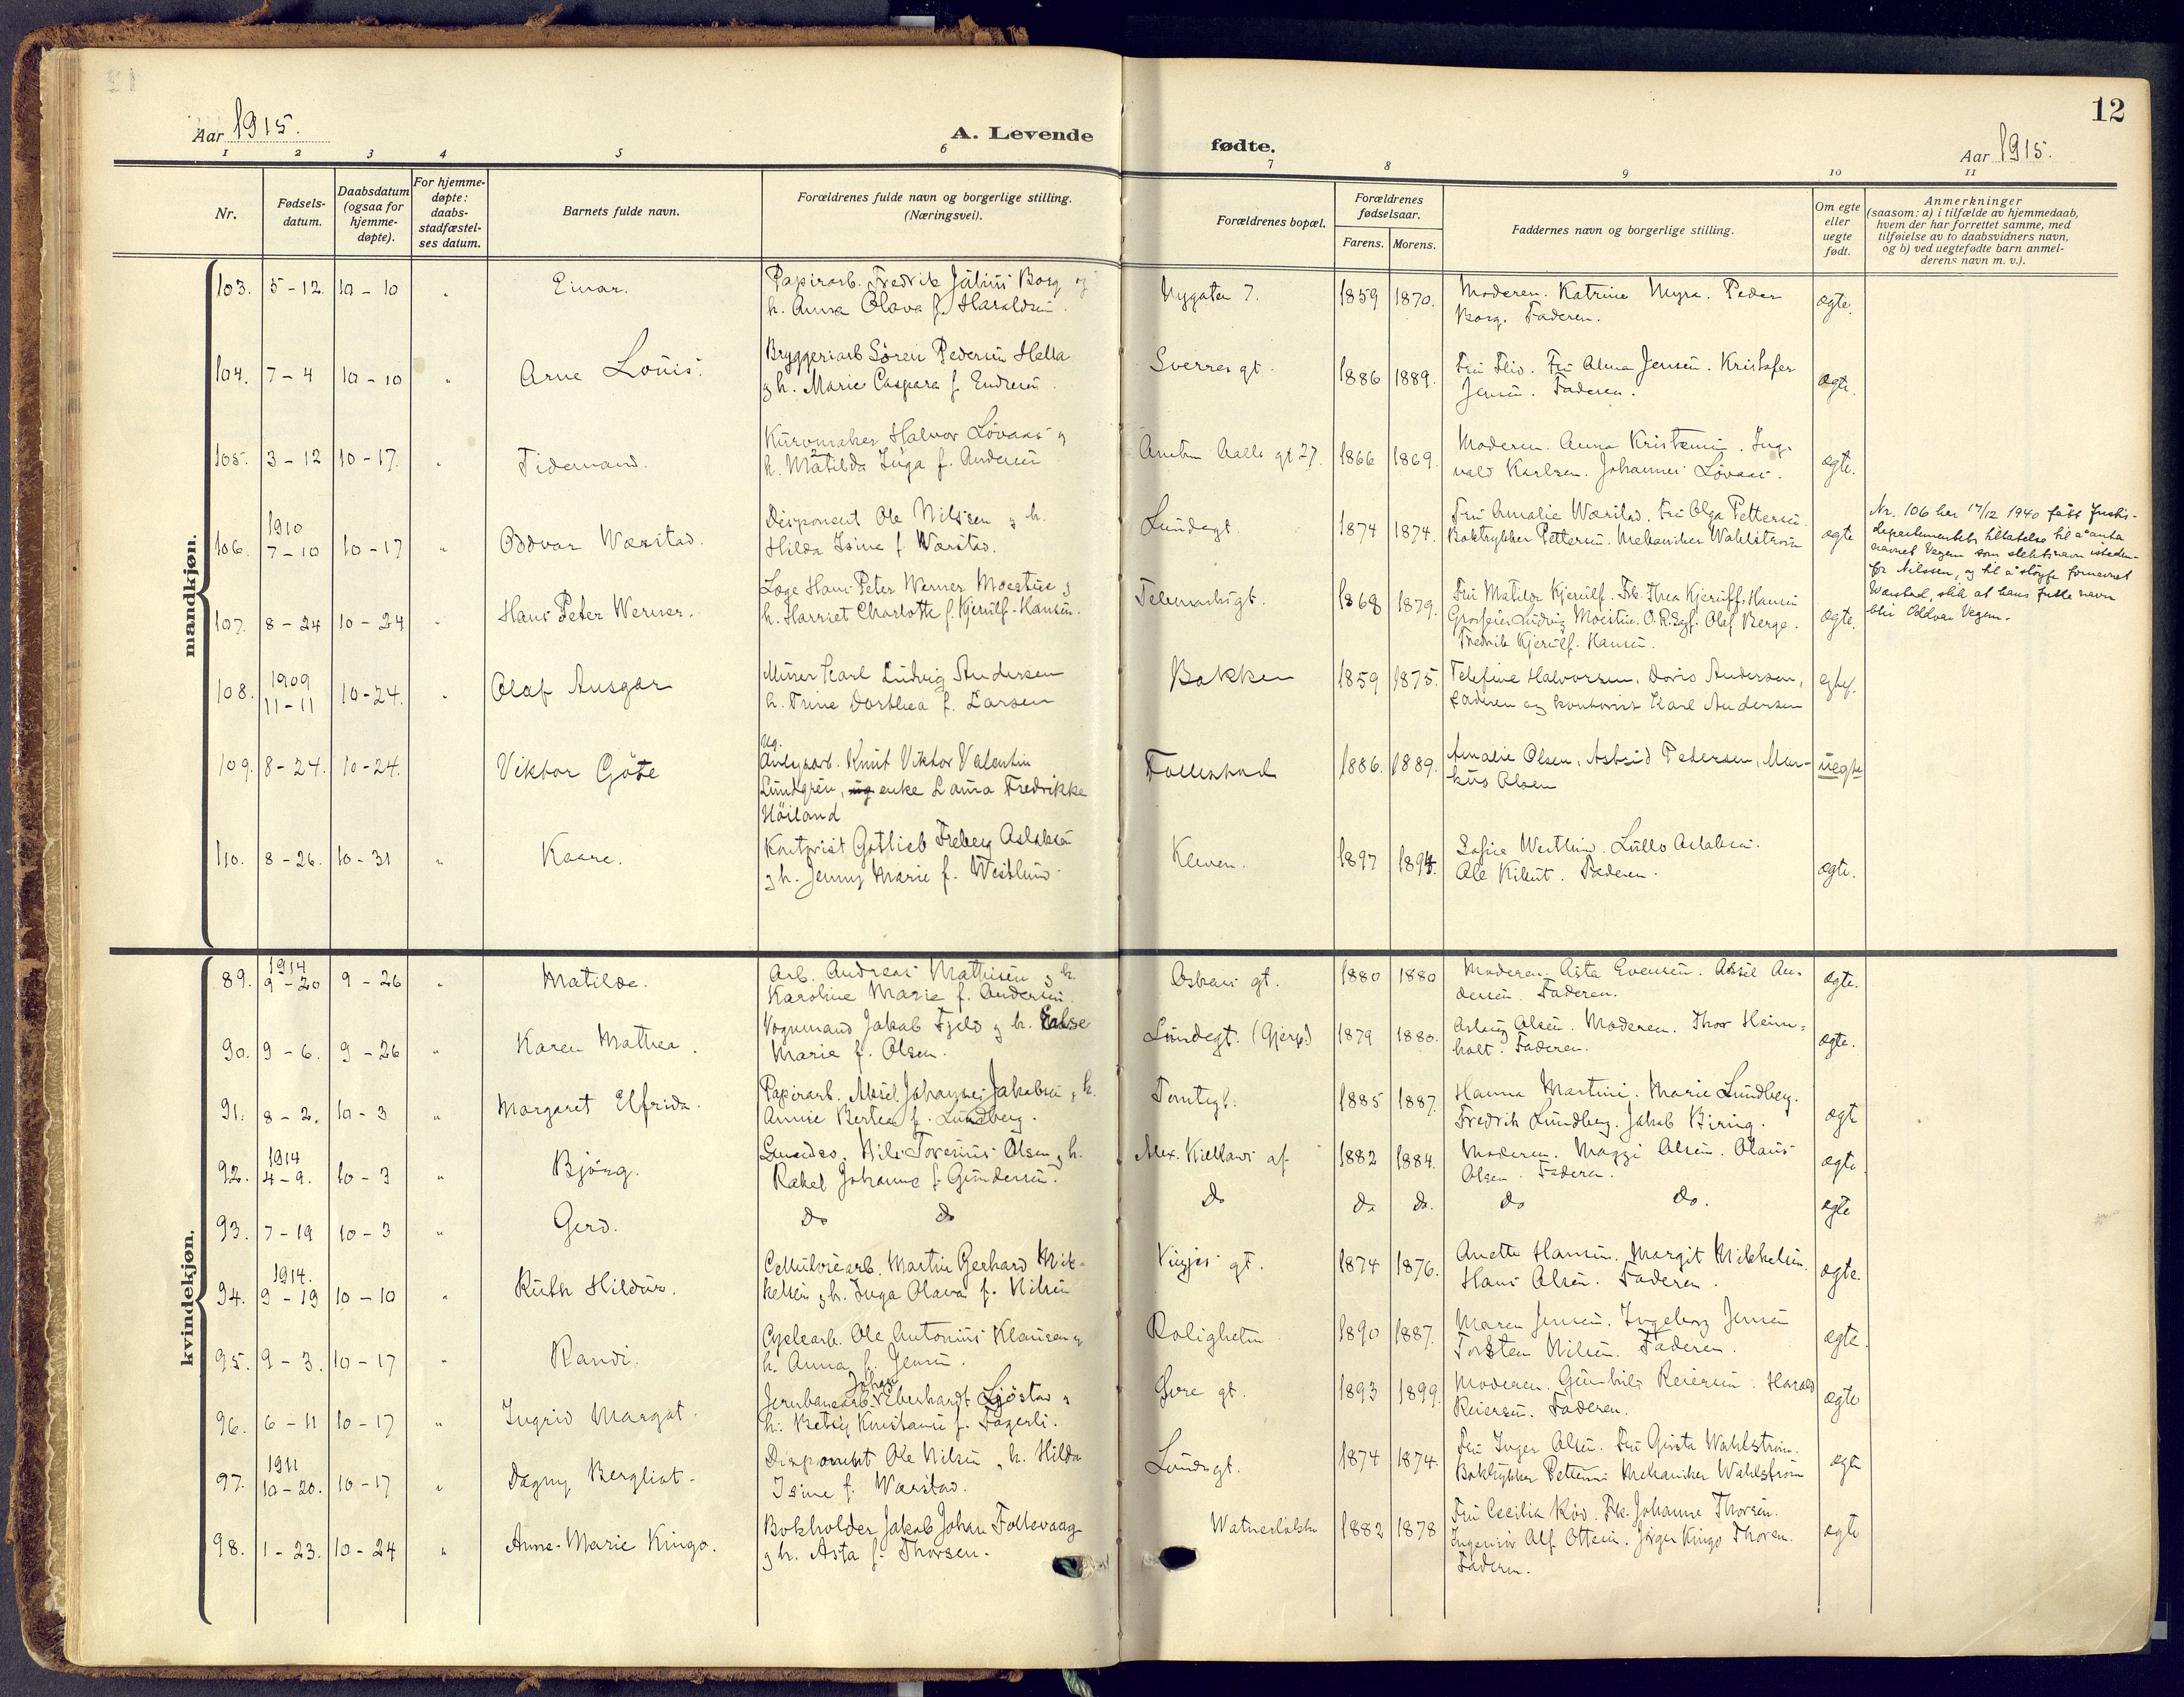 12
Aar 1915.
A. Levende fødte.
Aar 1915.
1 2 3 4 5 6 7 8 9 10 11
Nr.
Fødsels-
datum.
Daabsdatum
(ogsaa for
hjemme-
døpte).
For hjemme-
døpte:
daabs-
stadfæstel-
ses datum.
Barnets fulde navn.
Forældrenes fulde navn og borgerlige stilling.
(Næringsvei).
Forældrenes bopæl.
Forældrenes
fødselsaar.
Farens. Morens.
Faddernes navn og borgerlige stilling.
Om egte
eller
uegte
født.
Anmerkninger
(saasom: a) i tilfælde av hjemmedaab,
hvem der har forrettet samme, med
tilføielse av to daabsvidners navn,
og b) ved uegtefødte barn anmel-
derens navn m. v.).
mandkjøn.
103. 5-12. 10-10 " Einar. Papirarb. Fredrik Julius Borg og Nygaten 7. 1859 1870. Moderen. Katrine Myra. Peder ægte.
h. Anna Olava f. Haraldsen. Borg. Faderen.
104. 7-4 10-10 " Arne Louis. Bryggeriarb Sören Pedersen Hella Sverres gt. 1886 1889. Fru Alma Jensen. Kristofer ægte.
og h. Marie Caspara f. Endresen. Jensen. Faderen.
105. 3-12 10-17. " Tidemand. Kurvmaker Halvor Lövaas og gt 27. 1866 1869. Moderen. Anna Kristensen. Ing- ægte.
h. Matilda Inga f. Andersen vald Karlsen. Johannes Lövaas.
106. 1910 7-10 10-17 " Oddvar Wærstad. Disponent Ole Nilssen og h. Lundegt. 1874 1874. Fru Amalie Wærstad. Fru Olga Pettersen. ægte
Hilda Isine f. Wærstad. Boktrykker Pettersen. Mekaniker Wahlström
Nr. 106 har 17/12 1940 fått Justis-
departementets tillatelse til å anta
navnet Vegem som slektsnavn isteden-
for Nilssen, og til å sløyfe fornavnet
Wærstad, slik at hans fulle navn
blir Oddvar Vegem.
107. 8-24 10-24 " Hans Peter Werner. Læge Hans Peter Werner Moestue og Telemarksgt. 1868 1879. Fru Matilde Kjerulf. Frk. Thea Kjerulf-Hansen ægte.
h. Harriet Charlotte f. Kjerulf-Hansen. Grosserer Ludvig Moestue. O.R.Sagf. Olaf Berge.
Fredrik Kjerulf-Hansen.
108. 1909 11-11 10-24. " Olaf Ansgar Murer Karl Ludvig Andersen Bakken 1859 1875. Telefine Halvorsen, Doris Andersen,
h. Trine Dorthea f. Larsen Faderen og kontorist Karl Andersen
109. 8-24. 10-24. Viktor Göte ug.
Anlegsarb. Knut Viktor Valentin Follestad 1886. 1889. Amalie Olsen, Astrid Pedersen, Mar- uegte
Lundgren, ug enke Laura Fredrikke kus Olsen
Höiland
110. 8-26. 10-31 " Kaare. Kontorist Gotlieb Freberg Aslaksen Kleven. 1897 1894. Sofie Westlund. Lullo Aslaksen. ægte.
og h. Jenny Marie f. Westlund. Ole Kilset. Faderen.
kvindekjøn.
89. 1914 9-20 9-26 " Matilde. Arb. Andreas Mathisen og h. gt. 1880 1880 Moderen. Asta Evensen. Aksel An- ægte.
Karoline Marie f. Andersen. dersen. Faderen.
90. 9-6. 9-26 " Karen Mathea. Vognmand Jakob Fjeld og h. Lundegt. (Gjerp.) 1879 1880. Aslaug Olsen. Moderen. Thor Heim- ægte.
Marie f. Olsen. holt. Faderen.
91. 8-2. 10-3 " Margaret Elfrida. Papirarb. Aksel Johannes Jakobsen og h. Tomtegt. 1885 1887. Hanna Martini. Marie Lundberg. ægte
Annie Bertea f. Lundberg. Fredrik Lundberg. Jakob Biring.
92. 1914 4-9. 10-3 " Björg. Nils Torenius Olsen og h. Alex. Kiellands gt. 1882 1884. Moderen. Maggi Olsen. Olaus ægte.
Rakel Johanne f. Gundersen. Olsen. Faderen.
93. 7-19 10-3 " Gerd. do do do do do. do do. ægte
94. 1914. 9-19 10-10 " Ruth Hildur. Cellulosearb. Martin Gerhard Mik- gt. 1874 1876. Anette Hansen. Margit Mikkelsen. ægte.
kelsen og h. Inga Olava f. Nilsen Hans Olsen. Faderen.
95. 9-3. 10-17 " Randi. Cyclearb. Ole Antonius Klausen og Roligheten 1890 1887. Maren Jensen. Ingeborg Jensen ægte.
h. Anna f. Jensen. Torsten Nilsen. Faderen.
96. 6-11 10-17 " Ingrid Margot. Jernbanearb. Johan Eberhardt Sjöstad og Övre gt. 1893 1899. Moderen. Gunhild Reiersen. Harald ægte
h. Betsy Kristiane f. Fagerli. Reiersen. Faderen.
97. 1911 10-20. 10-17 " Dagny Bergliot. Disponent Ole Nilsen og h. Hilda Lundegt. 1874 1874. Fru Inger Olsen. Fru Gusta Wahlström. ægte
Isine f. Wærstad. Boktrykker Pettersen Mekaniker Wahlström
98. 1-23. 10-24 " Anne-Marie Kingo. Bokholder Jakob Johan Follevaag 1882 1878 Fru Cecilia Rød. Frk. Johanne Thorsen. ægte
og h. Asta f. Thorsen. Ingeniör Alf Ottesen. Jörgen Kingo Thorsen.
Faderen.